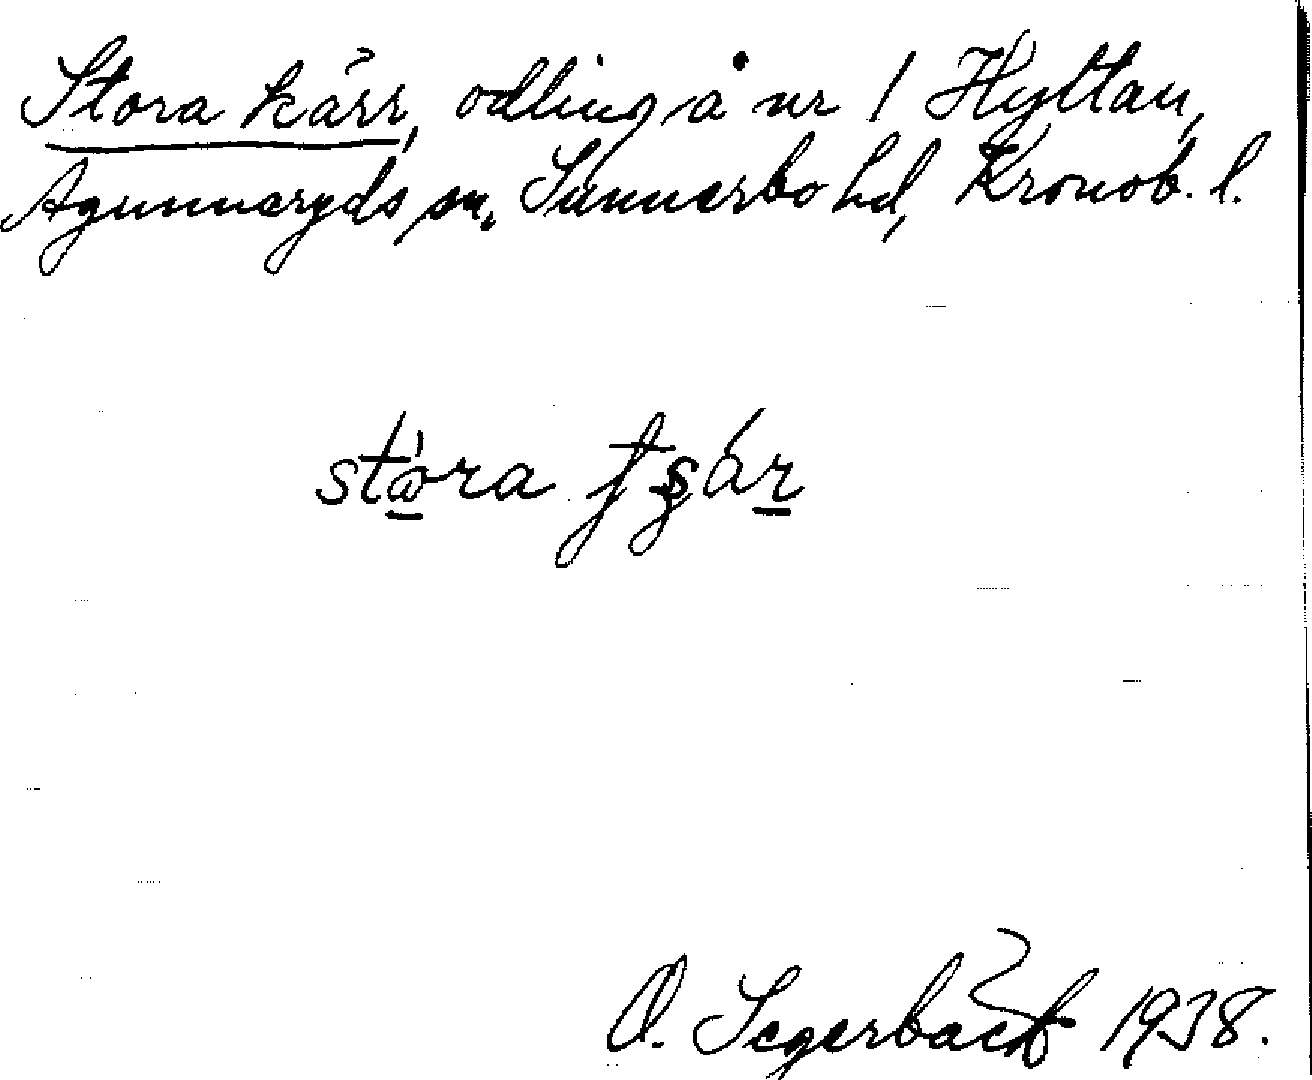 Stora kärr, odling å nr 1 Hyltan,
Agunnaryds sn, Sunnerbo hd, Kronob. l.
stora
O. Segerbäck 1938.